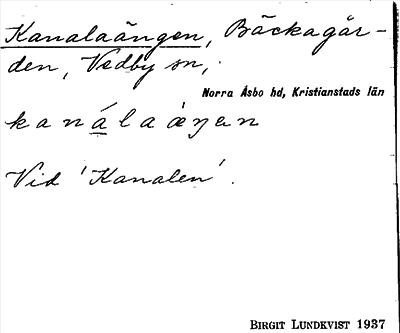 Kanalaängen, Bäckagår-
den, Vedby sn,
Norra Åsbo hd, Kristianstads län
kanála àeŋen
Vid 'Kanalen'.
BIRGIT LUNDKVIST 1937